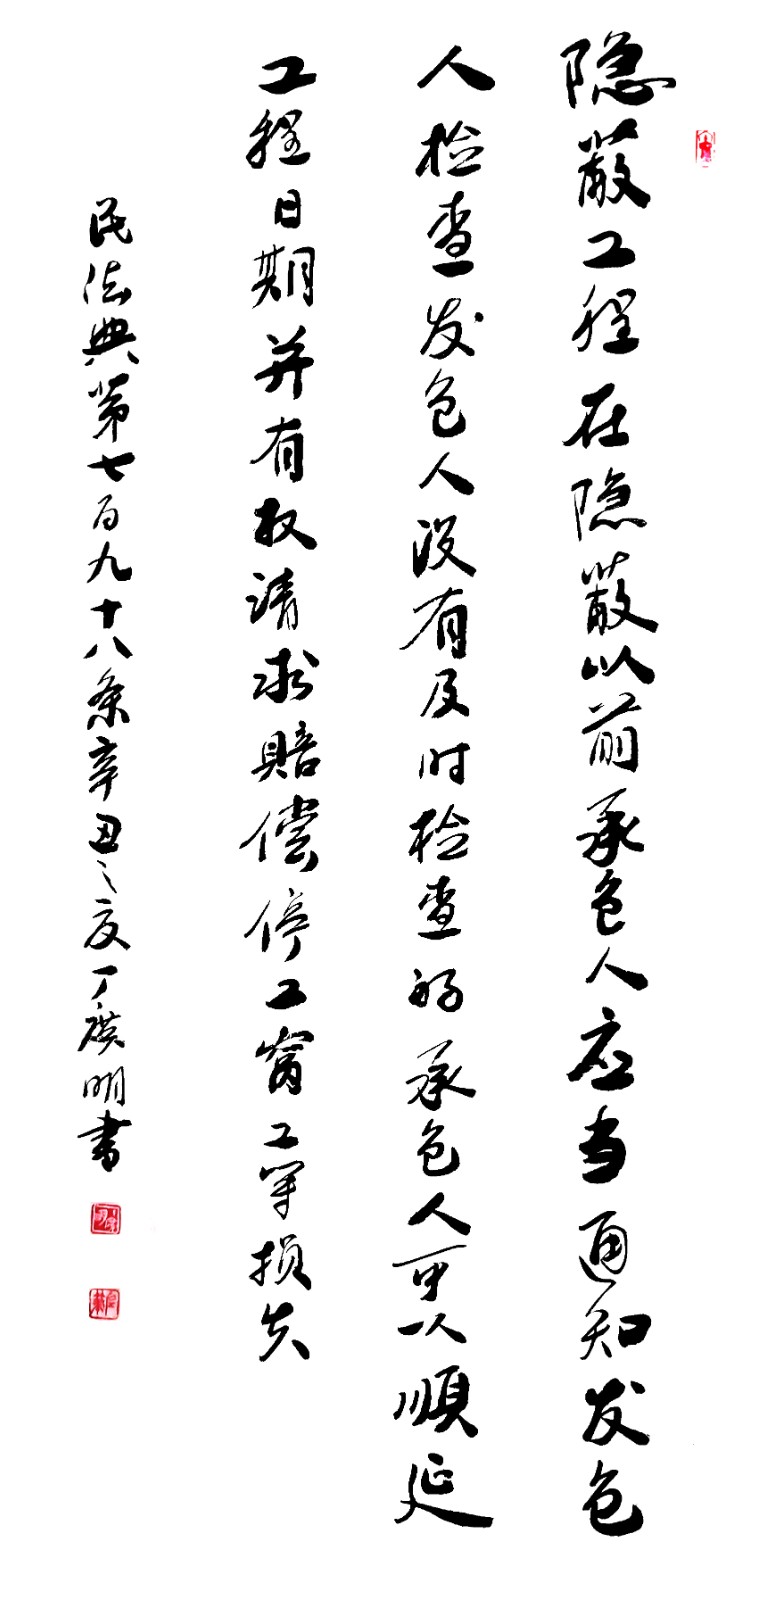 隐蔽工程在隐蔽以前承包人应当通知发包
人检查发包人没有及时检查的承包人可以顺延
工程日期并有权请求赔偿停工窝工等损失
民法典第七百九十八条辛丑之夏丁广明书